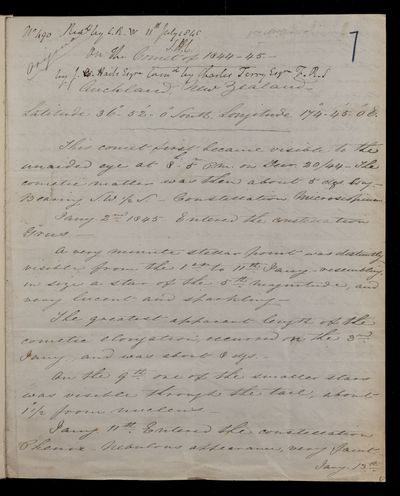 No. 490 Recd by C.R.W 11th July 1845
7
On the Comet of 1844-45-
by J. W. Haile Esqre Comd by Charles Terry Esqre F.R.S
Auckland, New Zealand-
Latitude 36°-52-0 South, Longitude 174-45-0 E.
This comet first became visible to the
unaided eye at 8-5 P.M. on Decr 20/44 - The
cometic matter was then about 5 degs long -
Bearing SW½S - Constellation Microscopium
Jany 2nd 1845 Entered the constellation
Grus -
A very minute stellar point was distinctly
visible from the 1st to 11th Jany - resembling
in size a star of the 5th magnitude, and
very lucent and sparkling -
The greatest apparent length of the
cometic elongation, occurred on the 3rd
Jany. and was about 8 degs.
On the 9th one of the smaller stars
was visible through the tail, about
1½ from nucleus -
Jany 11th. Entered the constellation
Phenix - Nebulous appearance, very faint
Jany 13th